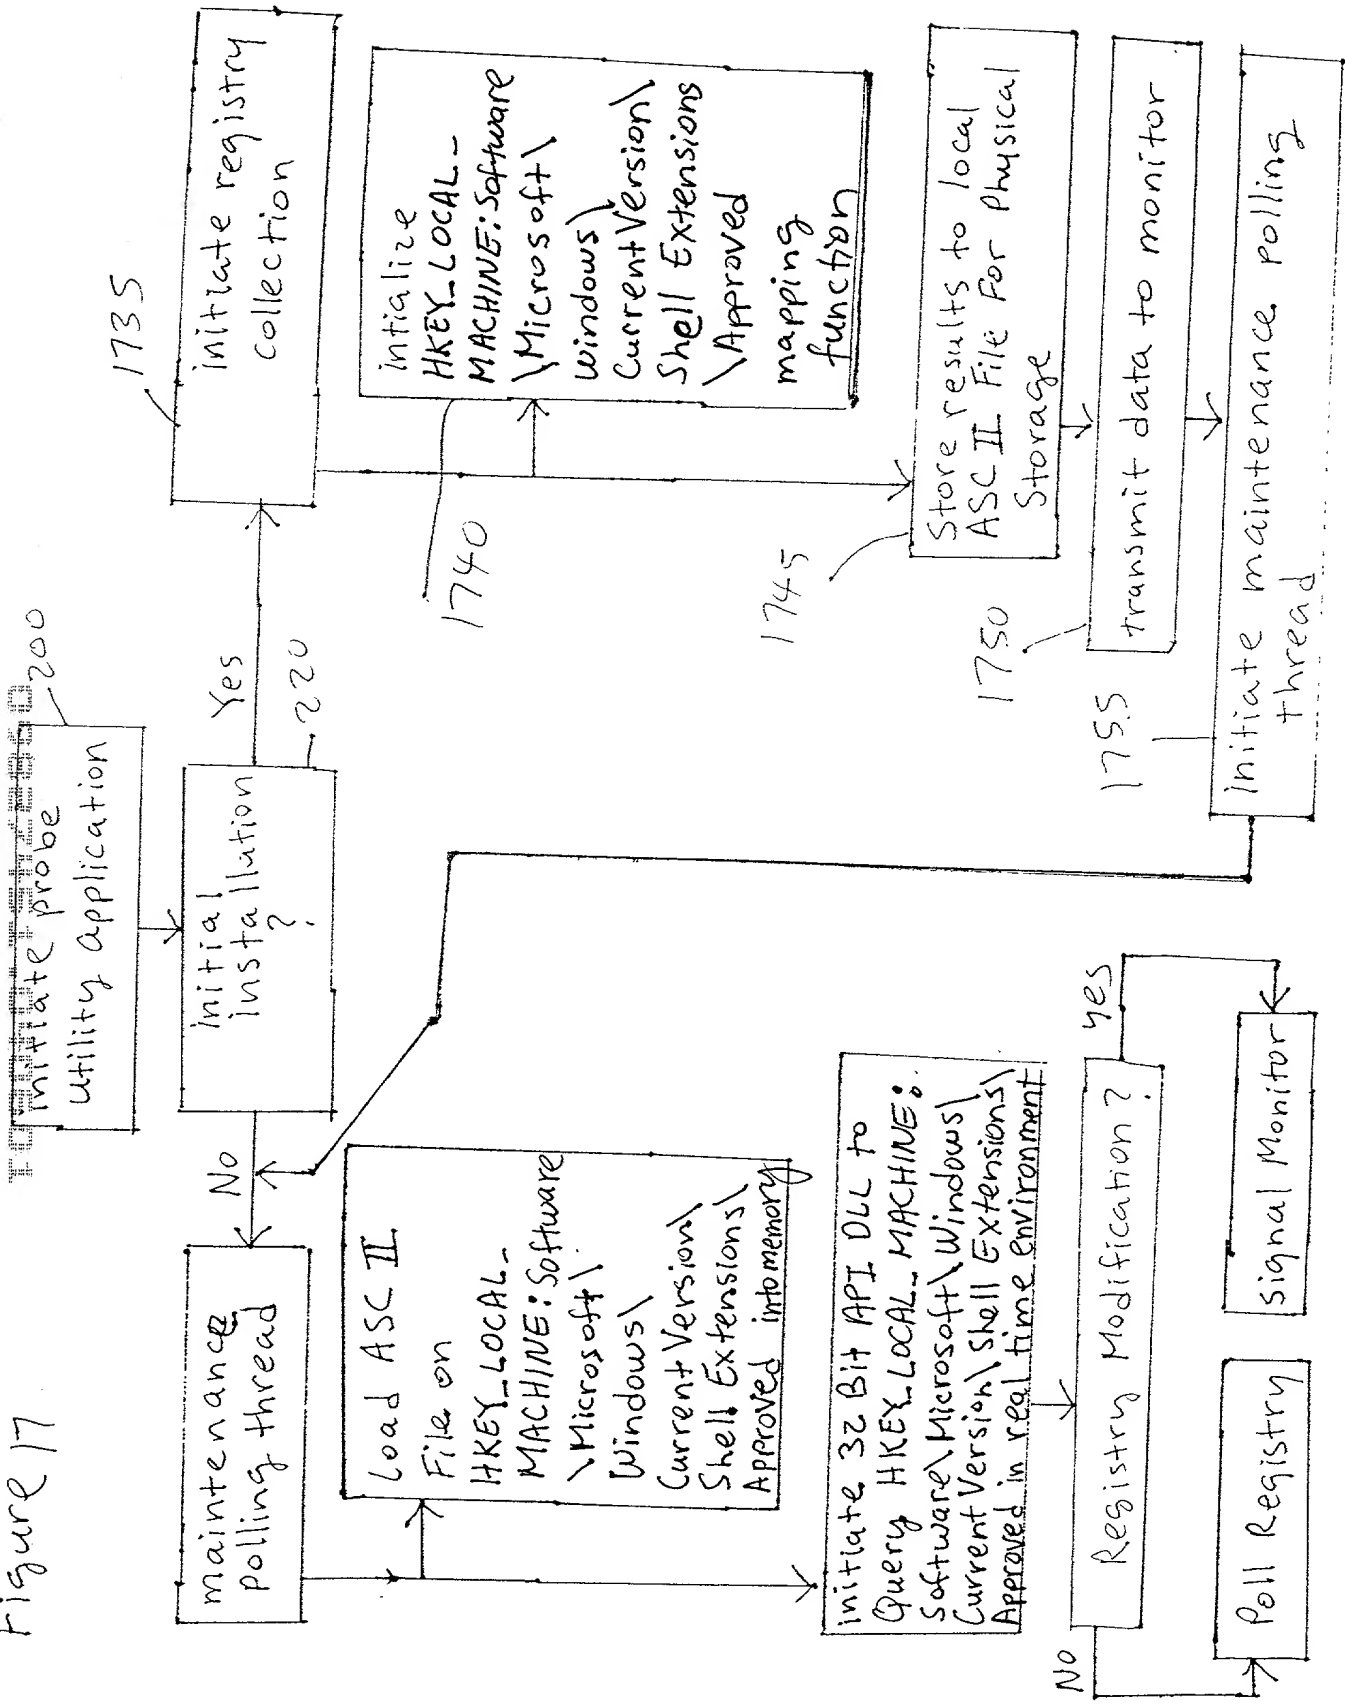 Figure 17
initiate probe
Utility application
200
initial
installation
?
220
Yes
No
1735
initiate registry
collection
1740
intialize
HKEY_LOCAL_
MACHINE:Software
\Microsoft\
Windows\
CurrentVersion\
Shell Extensions
\Approved
mapping
function
1745
Store results to local
ASC II File For Physical
Storage
1750
transmit data to monitor
1755
initiate maintenance polling
thread
maintenance
polling thread
Load ASC II
File on
HKEY_LOCAL_
MACHINE:Software
\Microsoft\
Windows\
CurrentVersion\
Shell Extensions\
Approved into memory
initiate 32 Bit API DLL to
Query HKEY_LOCAL_MACHINE:
Software\Microsoft\Windows\
CurrentVersion\Shell Extensions\
Approved in real time environment
Registry Modification?
yes
No
Signal Monitor
Poll Registry